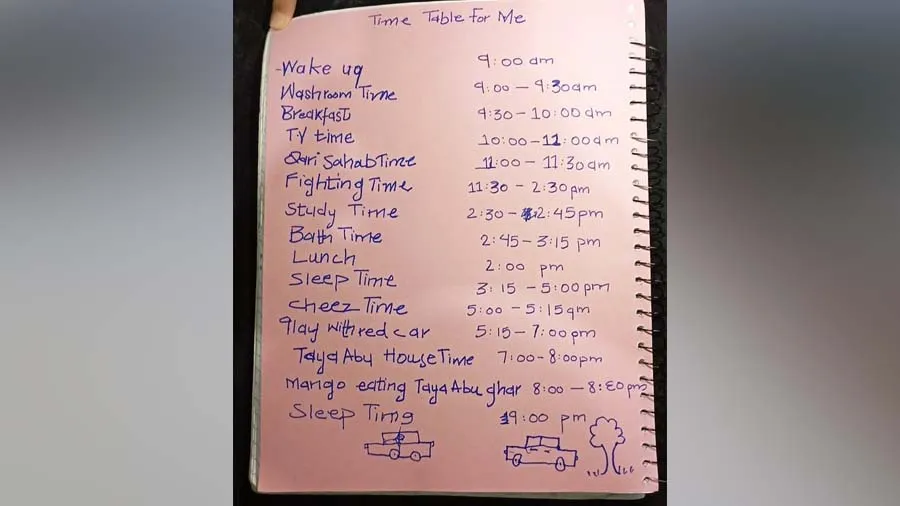 Time Table for Me
-Wake uq 9:00 am
Washroom Time 9:00 - 9:30am
Breakfast 9:30 - 10:00 am
T.V time 10:00 - 11:00am
Qari Sahab Time 11:00 - 11:30am
Fighting Time 11:30 - 2:30pm
Study Time 2:30 - 2:45pm
Bath Time 2:45 - 3:15 pm
Lunch 2:00 pm
Sleep Time 3:15 - 5:00pm
Cheez Time 5:00 - 5:15am
Play with red car 5:15 - 7:00pm
Taya Abu House Time 7:00 - 8:00pm
Mango eating Taya Abu ghar 8:00 - 8:30pm
Sleep Timg 9:00 pm